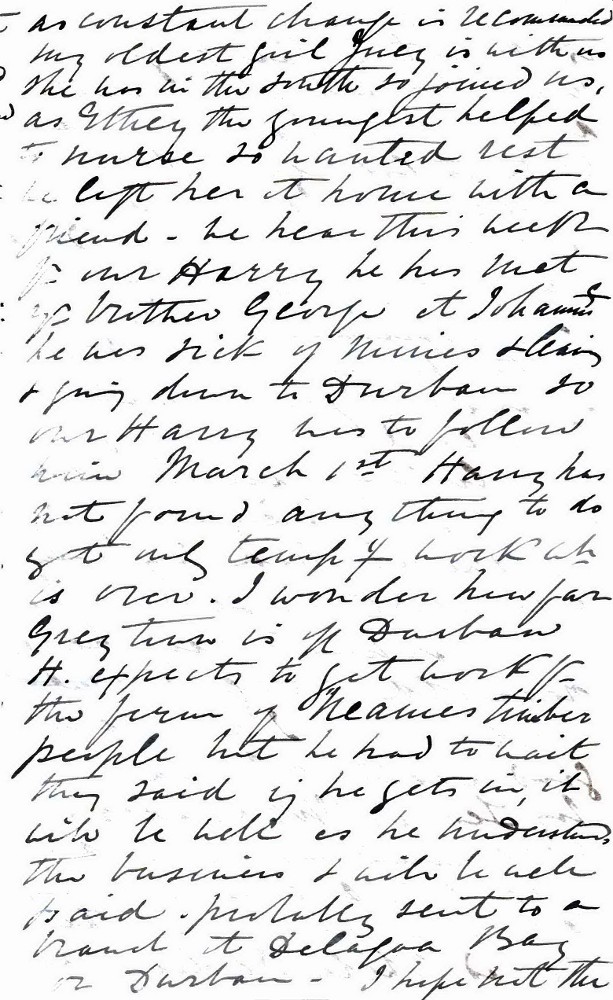 as constant change is recommended
my oldest girl is with us
she was in the South so joined us,
as the youngest helped
to nurse so wanted rest
we left her at home with a
friend - we hear this week
fr our Harry he has met
yr brother George at Johannsg
he was sick of Mines &
& going down to Durban so
our Harry was to follow
him March 1st Harry has
not found any thing to do
yet only tempy work wh
is over. I wonder how far
Greytown is off Durban
H. expects to get work fr
the firm of timber
people but he had to wait
they said if he gets in, it
will be well as he understands
the business & will be well
paid. probably sent to a
branch at Delagoa Bay
or Durban - I hope not the